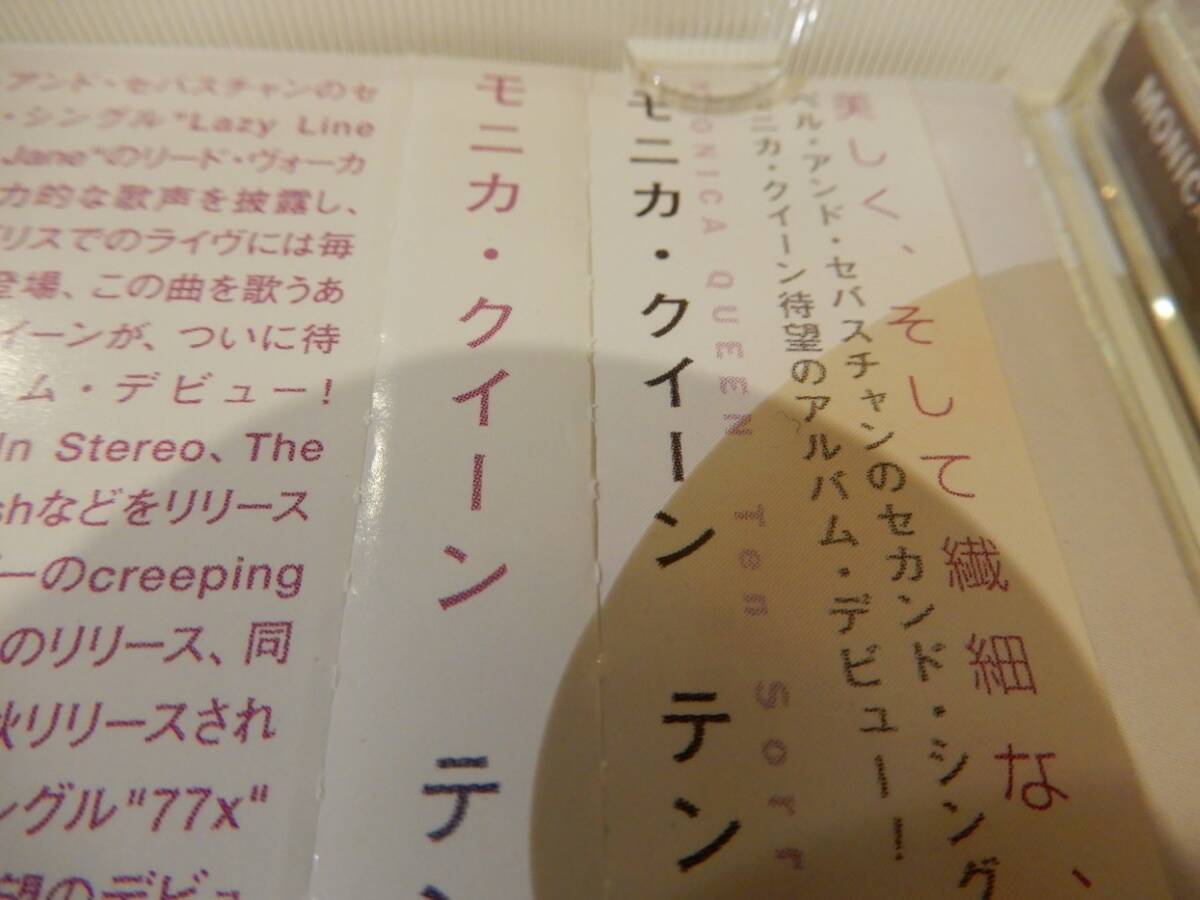 アンド・セバスチャンのセ
・シングル"Lazy Line
Jane"のリード・ヴォーカ
力的な歌声を披露し、
リスでのライヴには毎
登場、この曲を歌うあ
イーンが、ついに待
ム・デビュー!
In Stereo、The
shなどをリリース
ーのcreeping
のリリース、同
秋リリースされ
ングル"77x"
望のデビュ
モニカ・クイーン テン
モニカ・クイーン テン
MONICA QUEEN Ten Sorr
美しく、そして繊細な、
ベル・アンド・セバスチャンのセカンド・シング
ニカ・クイーン待望のアルバム・デビュー!
MONIC